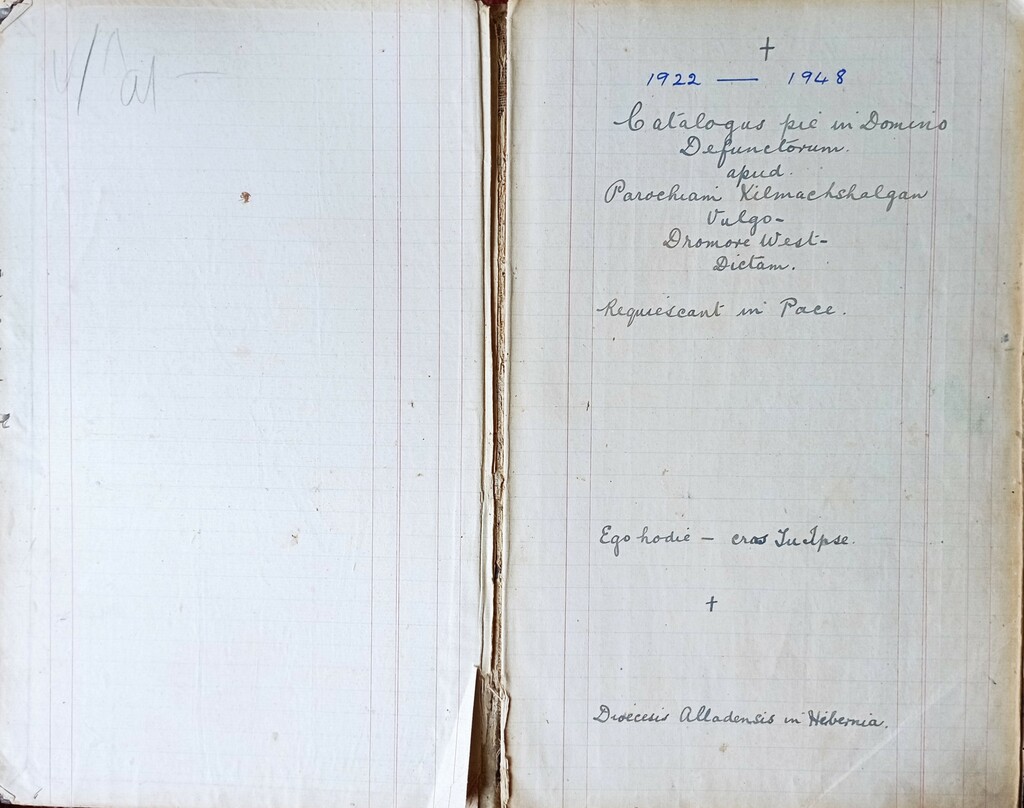 †
1922 — 1948
Catalogus pie in Domino
Defunctorum.
apud.
Parochiam Kilmachshalgan
Vulgo-
Dromore West-
Dictam.
Requiescant in Pace.
Ego hodie — cras Tu Ipse.
†
Dioecesis Alladensis in Hibernia.